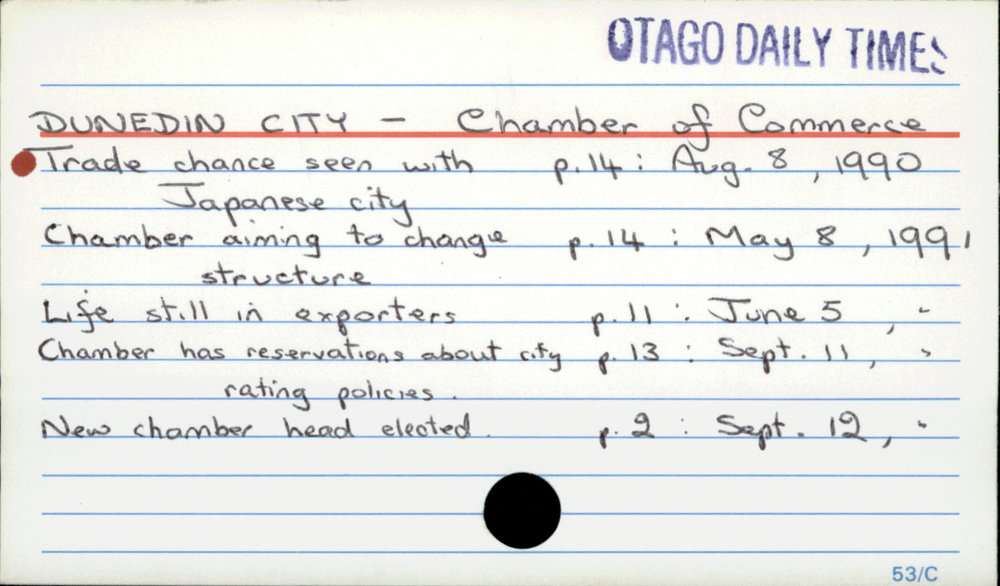 OTAGO DAILY TIMES
DUNEDIN CITY - Chamber of Commerce
Trade chance seen with p.14 : Aug. 8, 1990
Japanese city
Chamber aiming to change p.14 : May 8, 1991
structure
Life still in exporters p.11 : June 5, "
Chamber has reservations about city p.13 : Sept. 11, "
rating policies.
New chamber head elected. p.2 : Sept. 12, "
53/C